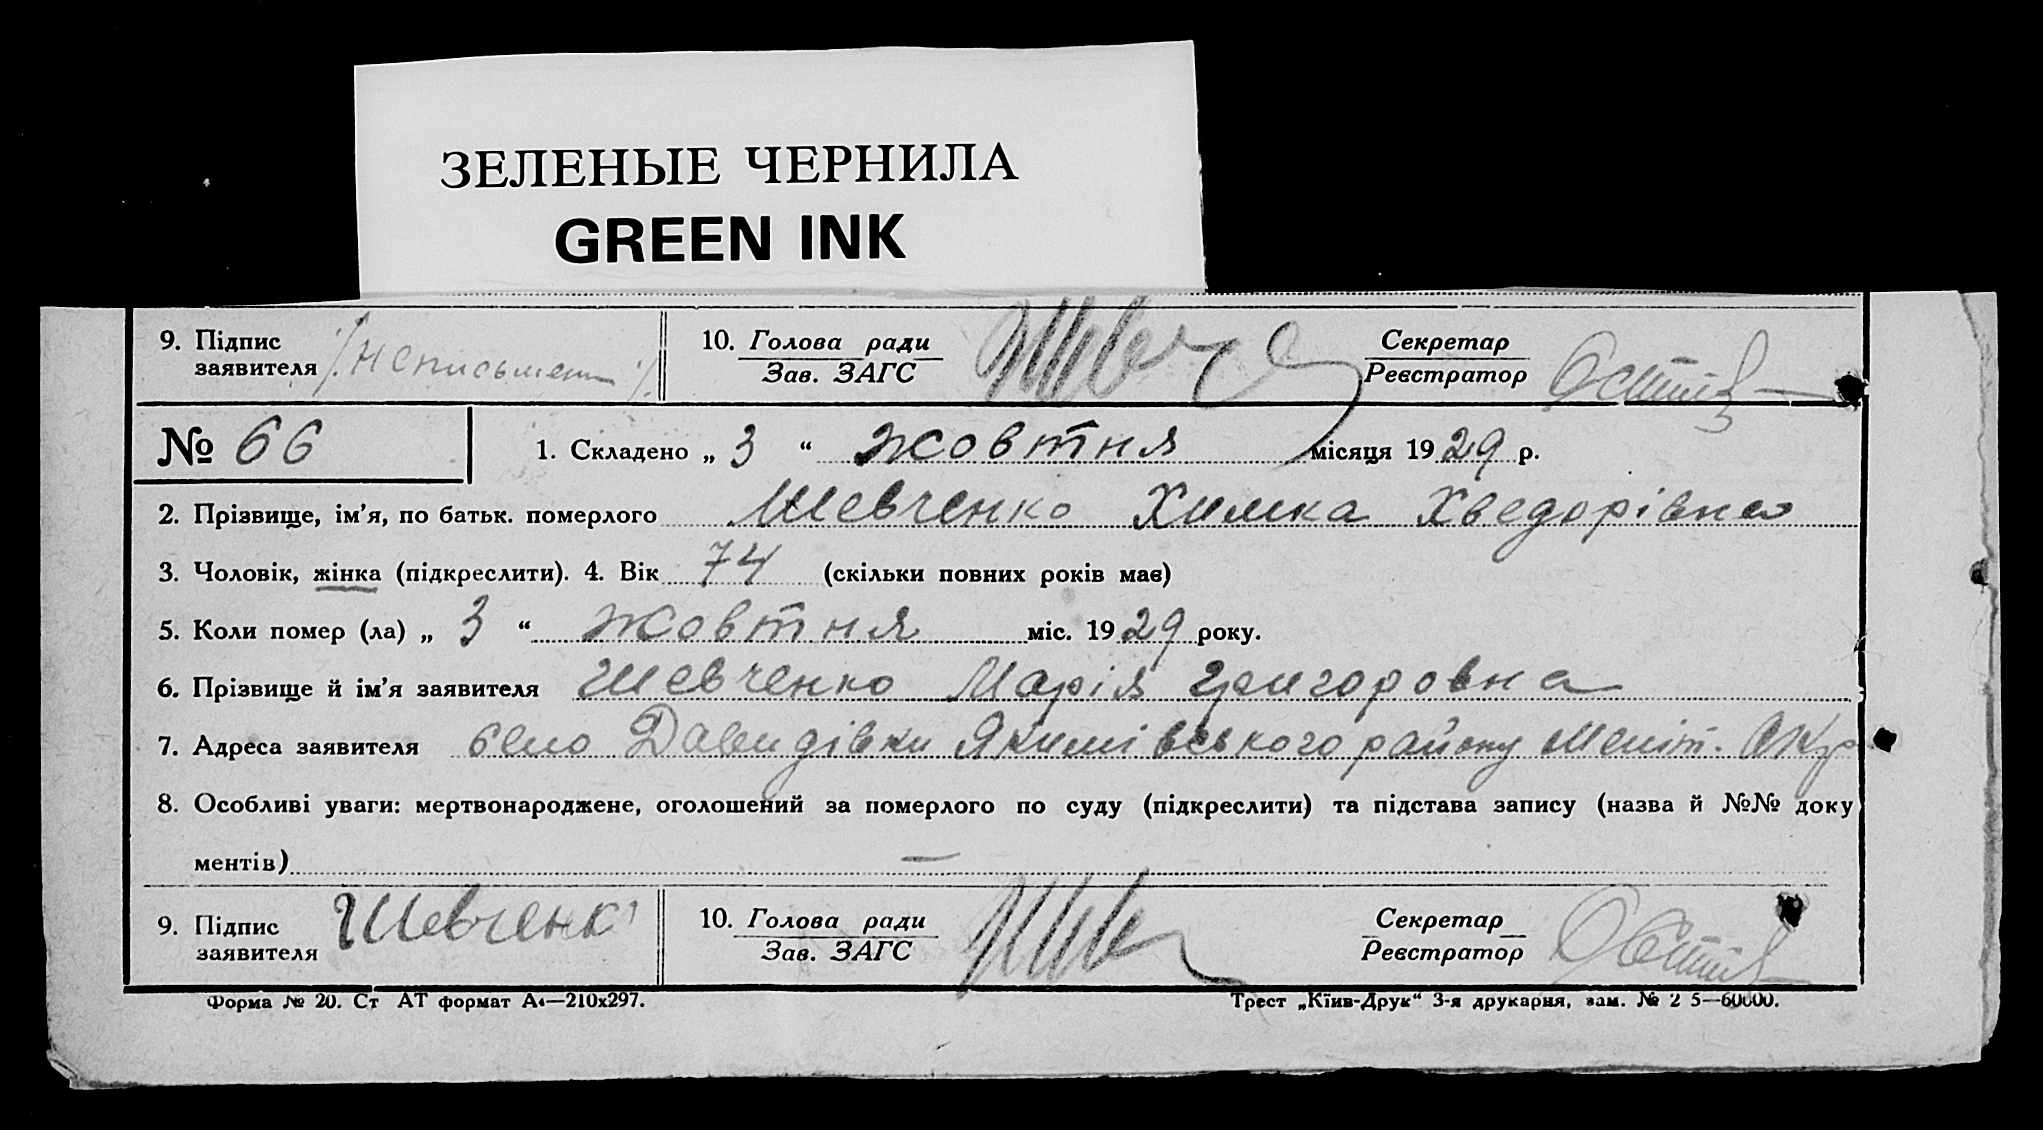 ЗЕЛЕНЫЕ ЧЕРНИЛА
GREEN INK
9. Підпис заявителя /неписьмен/ 10. Голова ради Зав. ЗАГС Секретар Реєстратор
№ 66 1. Складено „ 3 “ жовтня місяця 1929 р.
2. Прізвище, ім’я, по батьк. померлого Шевченко Химка Хведорівна
3. Чоловік, жінка (підкреслити). 4. Вік 74 (скільки повних років має)
5. Коли помер (ла) „ 3 “ жовтня міс. 1929 року.
6. Прізвище й ім’я заявителя Шевченко Марія Григоровна
7. Адреса заявителя село Давидівки Якимівського району Меліт. Окр
8. Особливі уваги: мертвонароджене, оголошений за померлого по суду (підкреслити) та підстава запису (назва й №№ доку
ментів) —
9. Підпис заявителя Шевченк 10. Голова ради Зав. ЗАГС Секретар Реєстратор
Форма № 20. Ст АТ формат А4—210х297. Трест „Київ-Друк“ 3-я друкарня, зам. № 2 5—60000.